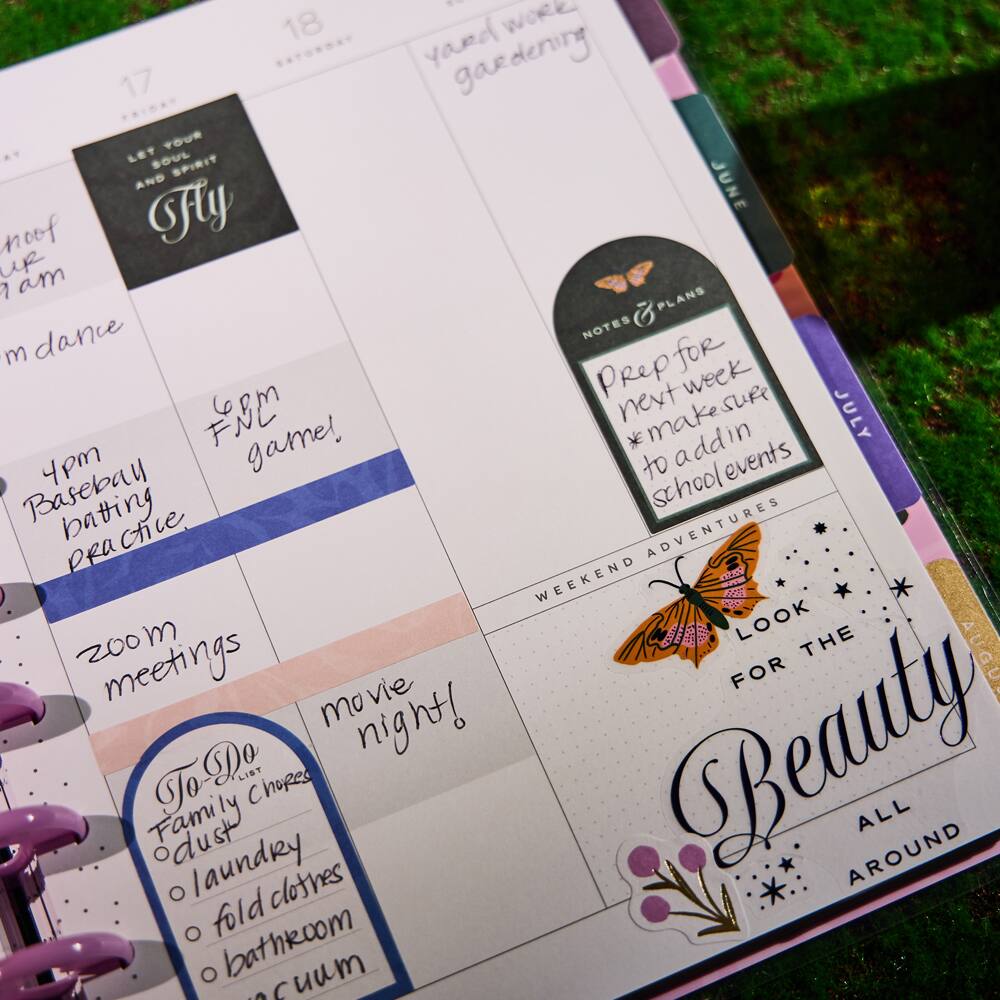 17
FRIDAY
18
SATURDAY
yard work
gardening
LET YOUR
SOUL
AND SPIRIT
Fly
9am
dance
4pm
Baseball
batting
practice.
zoom
meetings
6pm
FNL
game!
movie
night!
To-Do
LIST
Family Chores
dust
laundry
fold clothes
bathroom
NOTES & PLANS
Prep for
next week
*make sure
to add in
school events
WEEKEND ADVENTURES
LOOK
FOR THE
Beauty
ALL
AROUND
JUNE
JULY